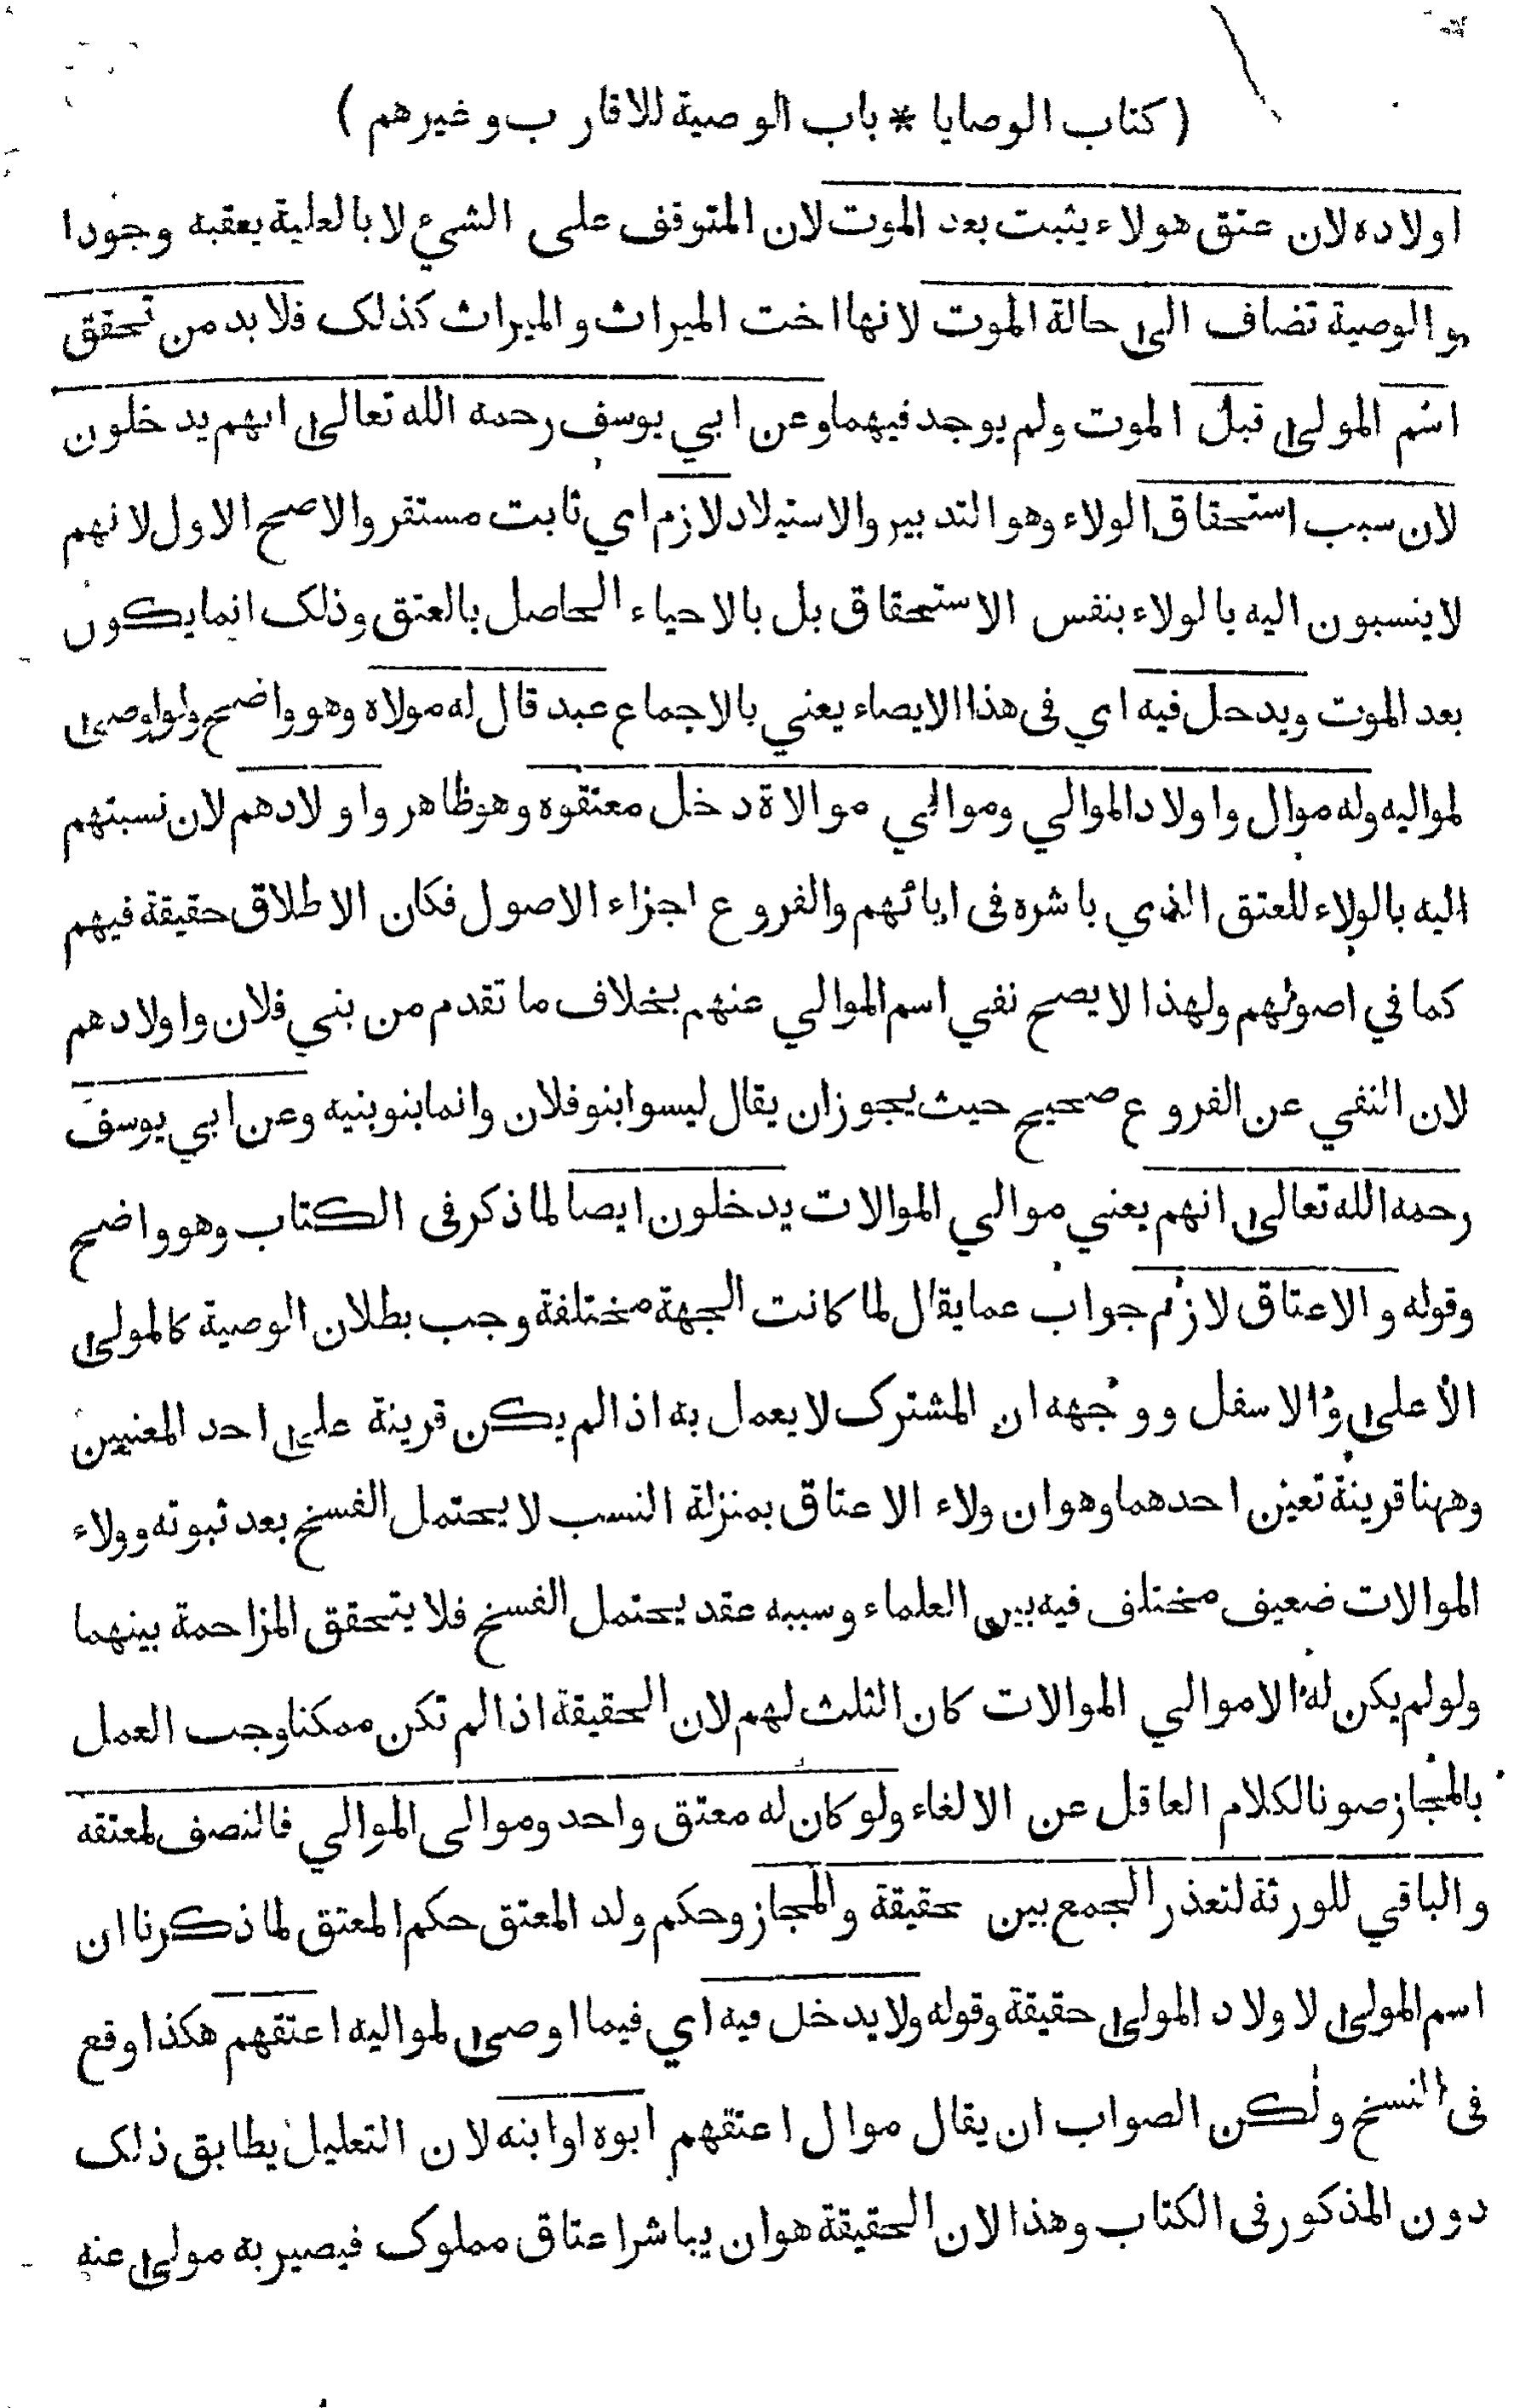 ( كتاب الوصايا * باب الوصية للاقارب وغيرهم )
اولاده لان عتق هولاء يثبت بعد الموت لان المتوقف على الشيء لا بالعلية يعقبه وجودا
والوصية تضاف الى حالة الموت لانها اخت الميراث والميراث كذلك فلا بد من تحقق
اسم المولى قبل الموت ولم يوجد فيهما وعن ابي يوسف رحمه الله تعالى انهم يدخلون
لان سبب استحقاق الولاء وهو التدبير والاستيلاد لازم اي ثابت مستقر والاصح الاول لانهم
لا ينسبون اليه بالولاء بنفس الاستحقاق بل بالاحياء الحاصل بالعتق وذلك انما يكون
بعد الموت ويدخل فيه اي في هذا الايصاء يعني بالاجماع عبد قال له مولاه وهو واضح ولو اوصى
لمواليه وله موال واولاد الموالي وموالي موالاة دخل معتقوه وهو ظاهر واولادهم لان نسبتهم
اليه بالولاء للعتق الذي باشره في ابائهم والفروع اجزاء الاصول فكان الاطلاق حقيقة فيهم
كما في اصولهم ولهذا لا يصح نفي اسم الموالي عنهم بخلاف ما تقدم من بني فلان واولادهم
لان النفي عن الفروع صحيح حيث يجوز ان يقال ليسوا بنو فلان وانما بنو بنيه وعن ابي يوسف
رحمه الله تعالى انهم يعني موالي الموالات يدخلون ايصا لما ذكر في الكتاب وهو واضح
وقوله والاعتاق لازم جواب عما يقال لما كانت الجهة مختلفة وجب بطلان الوصية كالمولى
الأعلى والاسفل ووجهه ان المشترك لا يعمل به اذا لم يكن قرينة على احد المعنيين
وههنا قرينة تعين احدهما وهو ان ولاء الاعتاق بمنزلة النسب لا يحتمل الفسخ بعد ثبوته وولاء
الموالات ضعيف مختلف فيه بين العلماء وسببه عقد يحتمل الفسخ فلا يتحقق المزاحمة بينهما
ولو لم يكن له الا موالي الموالات كان الثلث لهم لان الحقيقة اذا لم تكن ممكنا وجب العمل
بالمجاز صونا لكلام العاقل عن الالغاء ولو كان له معتق واحد وموالى الموالي فالنصف لمعتقه
والباقي للورثة لتعذر الجمع بين حقيقة والمجاز وحكم ولد المعتق حكم المعتق لما ذكرنا ان
اسم المولى لاولاد المولى حقيقة وقوله ولا يدخل فيه اي فيما اوصى لمواليه اعتقهم هكذا وقع
في النسخ ولكن الصواب ان يقال موال اعتقهم ابوه او ابنه لان التعليل يطابق ذلك
دون المذكور في الكتاب وهذا لان الحقيقة هو ان يباشر اعتاق مملوك فيصير به مولى عنه